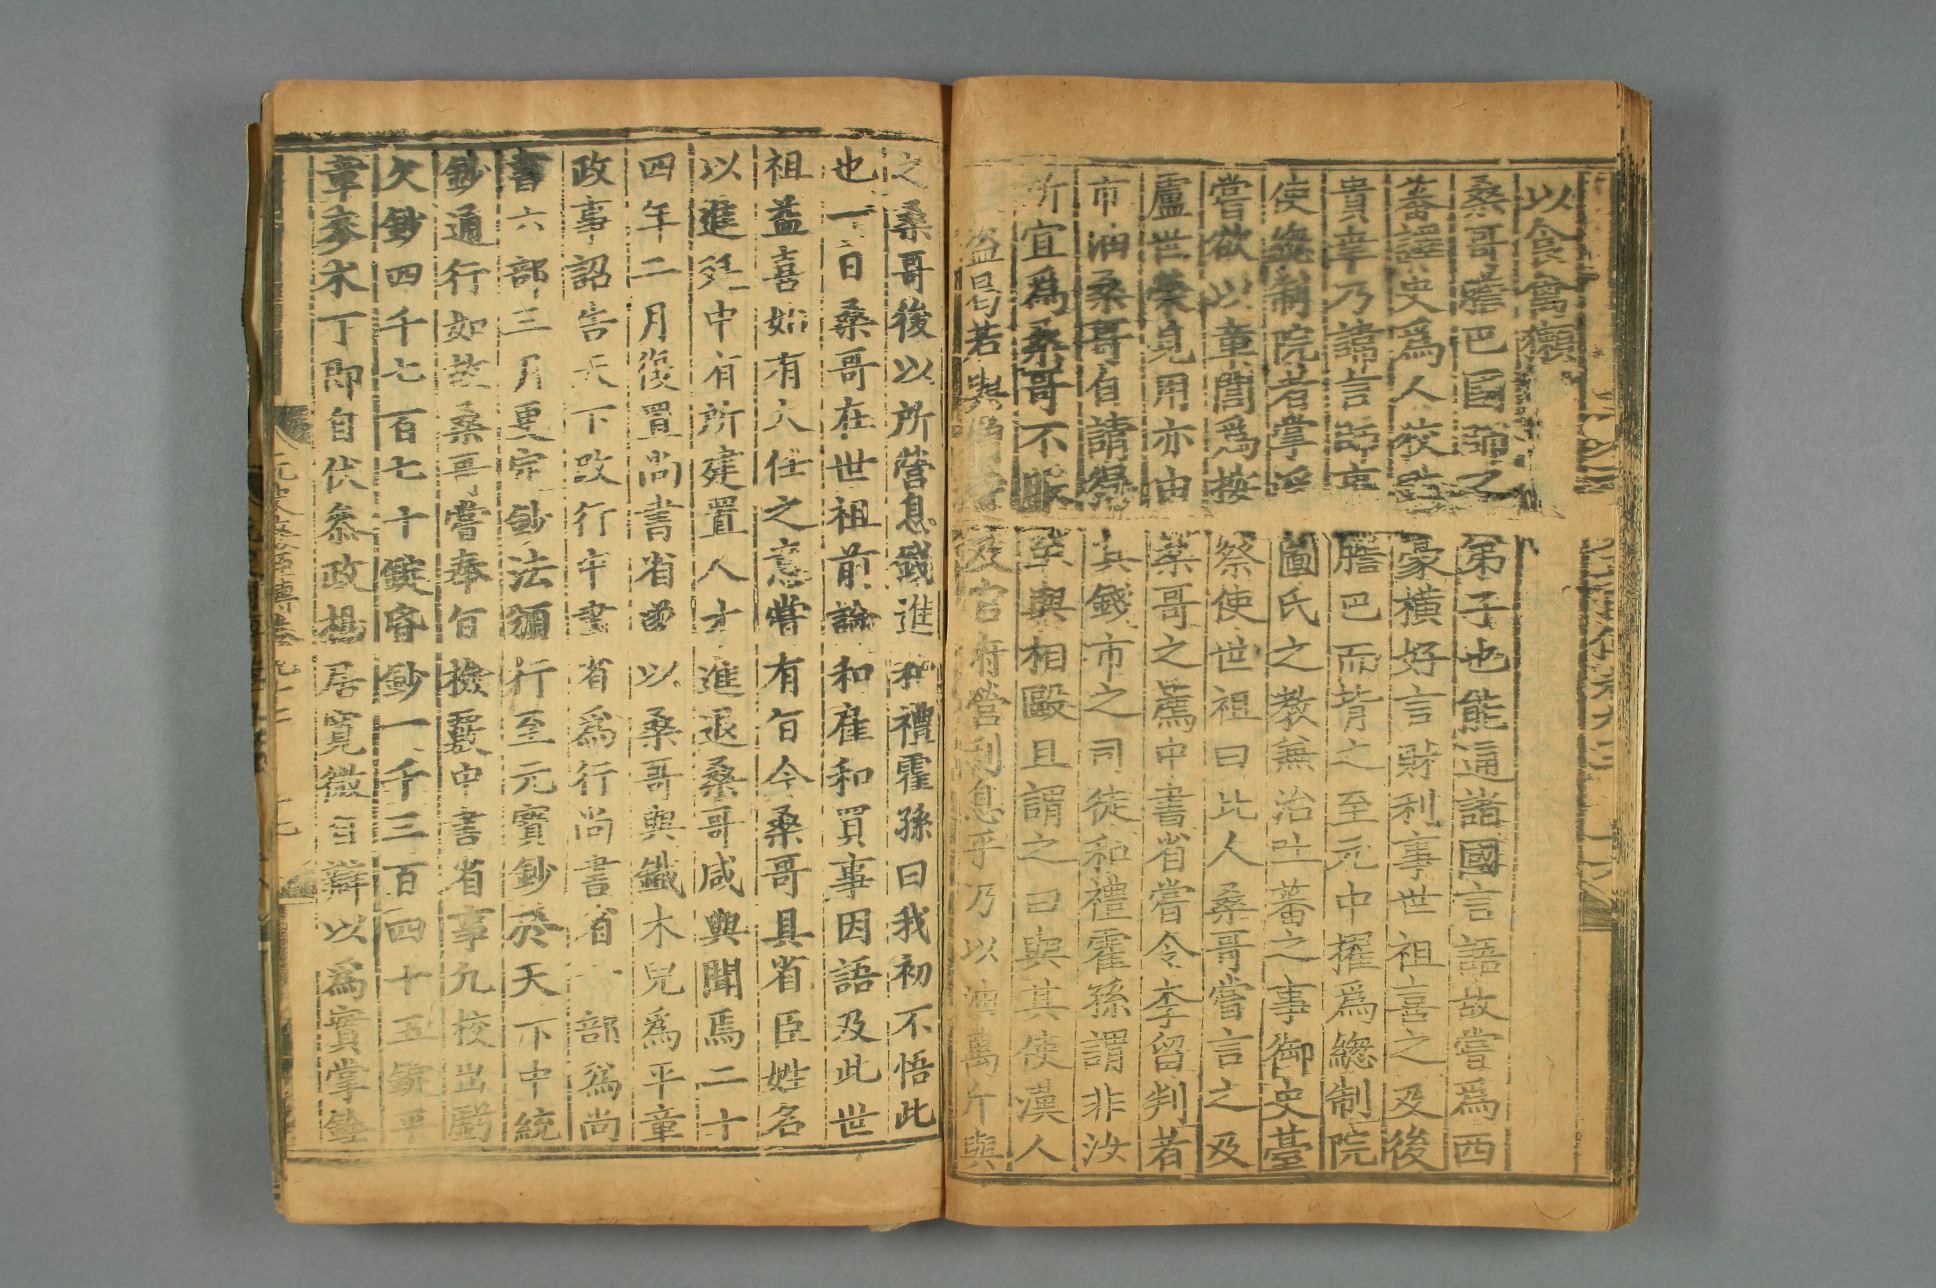 以食禽獺
桑哥膽巴國師之弟子也能通諸國言語故嘗爲西
蕃譯史爲人狡黠豪橫好言財利事世祖喜之及後
貴幸乃諱言師事膽巴而背之至元中擢爲總制院
使總制院者掌浮圖氏之教兼治吐蕃之事御史臺
嘗欲以章閭爲按祭使世祖曰此人桑哥嘗言之及
盧世榮見用亦由桑哥之薦中書省嘗令李留判者
市油桑哥自請得其錢市之司徒和禮霍孫謂非汝
所宜爲桑哥不服至與相毆且謂之曰與其使漢人
盜曷若與官府營利息乎乃以油萬斤與
之桑哥後以所營息錢進和禮霍孫曰我初不悟此
也一日桑哥在世祖前論和雇和買事因語及此世
祖益喜始有大任之意嘗有旨令桑哥具省臣姓名
以進廷中有所建置人才進退桑哥咸與聞焉二十
四年二月復置尚書省 以桑哥與鐵木兒爲平章
政事詔告天下改行中書省爲行尚書省六部爲尚
書六部三月更定鈔法頒行至元寶鈔於天下中統
鈔通行如故桑哥嘗奉旨檢覈中書省事凡校出虧
欠鈔四千七百七十錠昏鈔一千三百四十五錠平
章麥朮丁即自伏參政楊居寬微自辯以爲實掌銓
元史列傳卷九十二 十七